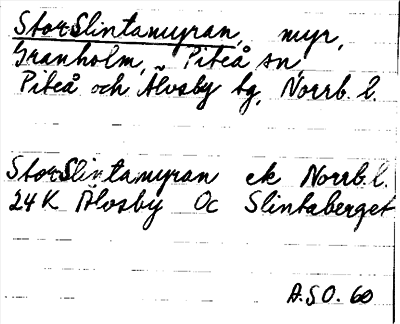 StorSlintamyran, myr,
Granholm, Piteå sn,
Piteå och Älvsby tg, Norrb. l.
StorSlintamyran ek Norrb. l.
24 K Älvsby Oc Slintaberget
A.S.O. 60